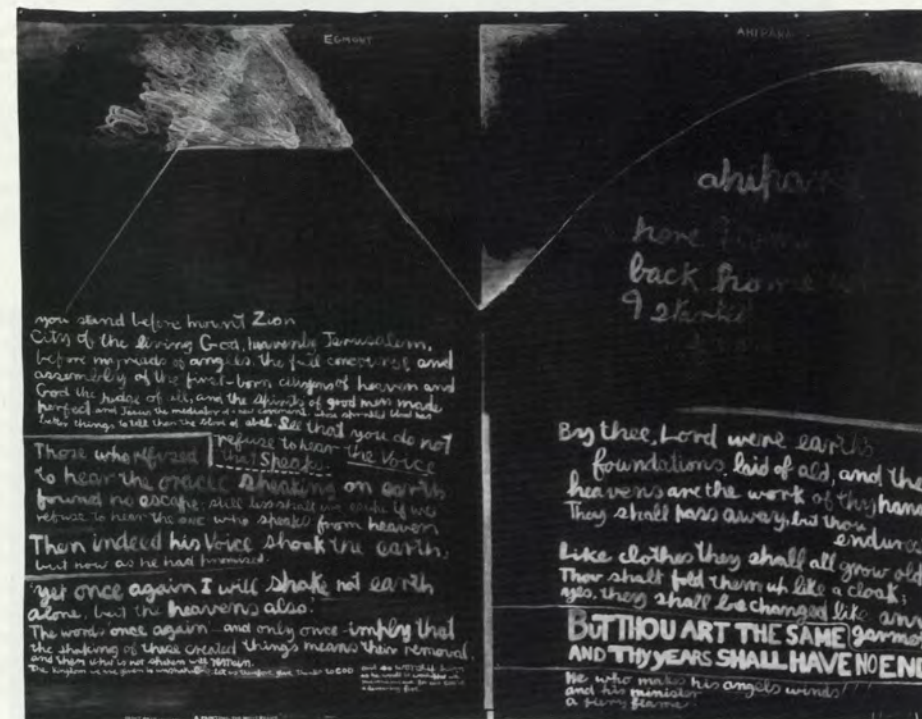 EGMONT
you stand before mount Zion
City of the living God, heavenly Jerusalem,
before myriads of angels, the full concourse and
assembly of the first-born citizens of heaven and
God the judge of all, and the spirits of good men made
perfect and Jesus the mediator of a new covenant, whose sprinkled blood has
better things to tell than the blood of abel. See that you do not
refuse to hear the Voice
that Speaks.
Those who refused
to hear the oracle speaking on earth
found no escape; still less shall we escape if we
refuse to hear the one who speaks from heaven
Then indeed his Voice shook the earth,
but now as he had promised.
'yet once again I will shake not earth
alone, but the heavens also.'
The words once again - and only once - imply that
the shaking of these created things means their removal.
and then what is not shaken will remain.
The kingdom we are given is unshakable; let us therefore give thanks to GOD
and so worship
AHIPARA
ahipara
here
back home
I started
By thee, Lord were earth's
foundations laid of old, and the
heavens are the work of thy hand
They shall pass away, but thou
endure
Like clothes they shall all grow old
Thou shalt fold them up like a cloak;
yes, they shall be changed like any
BUT THOU ART THE SAME garme
AND THY YEARS SHALL HAVE NO END
He who makes his angels winds
and his minister
a fiery flame